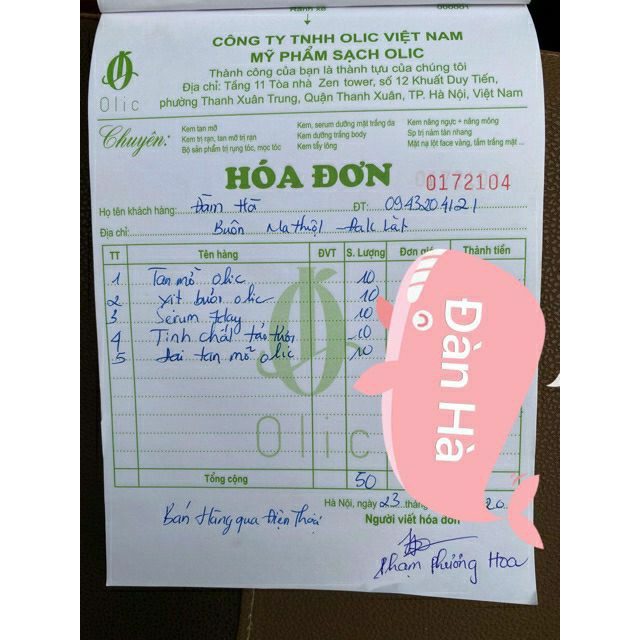 000001
CÔNG TY TNHH OLIC VIỆT NAM
MỸ PHẨM SẠCH OLIC
Thành công của bạn là thành tựu của chúng tôi
Địa chỉ: Tầng 11 Tòa nhà Zen tower, số 12 Khuất Duy Tiến,
phường Thanh Xuân Trung, Quận Thanh Xuân, TP. Hà Nội, Việt Nam
Olic
Chuyên:
Kem tan mỡ
Kem trị rạn, tan mỡ trị rạn
Bộ sản phẩm trị rụng tóc, mọc tóc
Kem, serum dưỡng mặt trắng da
Kem dưỡng trắng body
Kem tẩy lông
Kem nâng ngực + nâng mông
Sp trị nám tàn nhang
Mặt nạ lột face vàng, tắm trắng mặt ...
HÓA ĐƠN
0172104
Họ tên khách hàng: Đàm Hà ĐT: 0943204121
Địa chỉ: Buôn Ma thuột - Đak Lăk
TT Tên hàng ĐVT S. Lượng Đơn giá Thành tiền
1 Tan mỡ olic 10
2 Xịt bưởi olic 10
3 Serum 7day 10
4 Tinh chất 10
5 Đai tan mỡ olic 10
Olic
Đàn Hà
Tổng cộng 50
Hà Nội, ngày 23 tháng 20
Bán Hàng qua Điện Thoại
Người viết hóa đơn
Phạm Phương Hoa